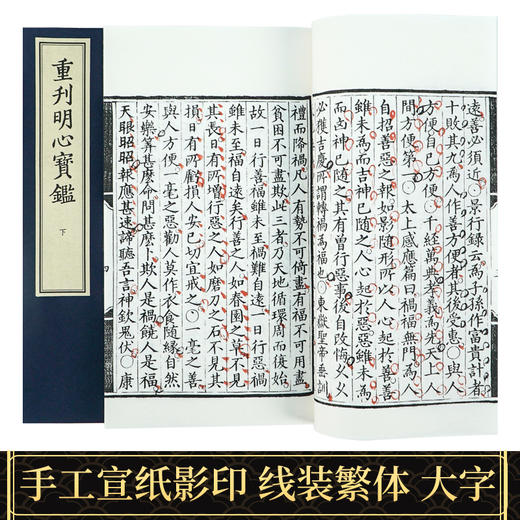 重刊明心寶鑑
下
遠善必須近○景行錄云爲子孫作富貴計者
十敗其九爲人作善方便者其後受惠○與人
方便自己方便○千經萬典孝義爲先天上人
間方便第一○太上感應篇曰禍福無門惟人
自招善惡之報如影隨形所以人心起於善善
雖未爲而吉神已隨之人心起於惡惡雖未爲
而凶神已隨之其有曾行惡事後自改悔久久
必獲吉慶所謂轉禍爲福也○東嶽聖帝垂訓
禮而降禍凡人有勢不可倚盡有福不可用盡
貧困不可盡欺此三者乃天地循環周而復始
故一日行善福雖未至禍難自遠一日行惡禍
雖未至福自遠矣行善之人如春園之草不見
其長日有所增行惡之人如磨刀之石不見其
損日有所虧損人安己切宜戒之○一毫之善
與人方便一毫之惡勸人莫作衣食隨緣自然
安樂算甚麽命問甚麽卜欺人是禍饒人是福
天眼昭昭報應甚速諦聽吾言神欽鬼伏○康
手工宣纸影印 线装繁体 大字